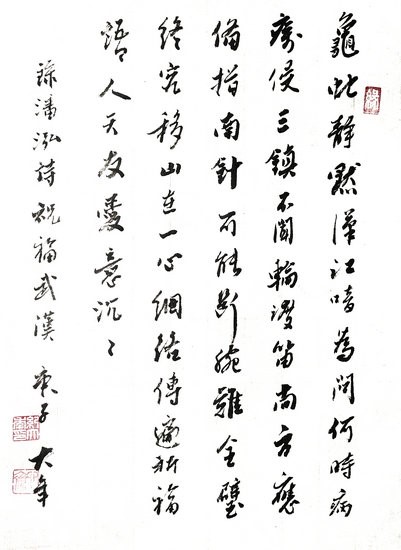 龜蛇靜默漢江喑為問何時病
侵三鎮不聞輪渡笛尚方應
備指南針能斷腕難全璧
終究移山在一心網絡傳遍祈福
語人天友愛意沉々
錄潘泓詩祝福武漢 庚子 大年